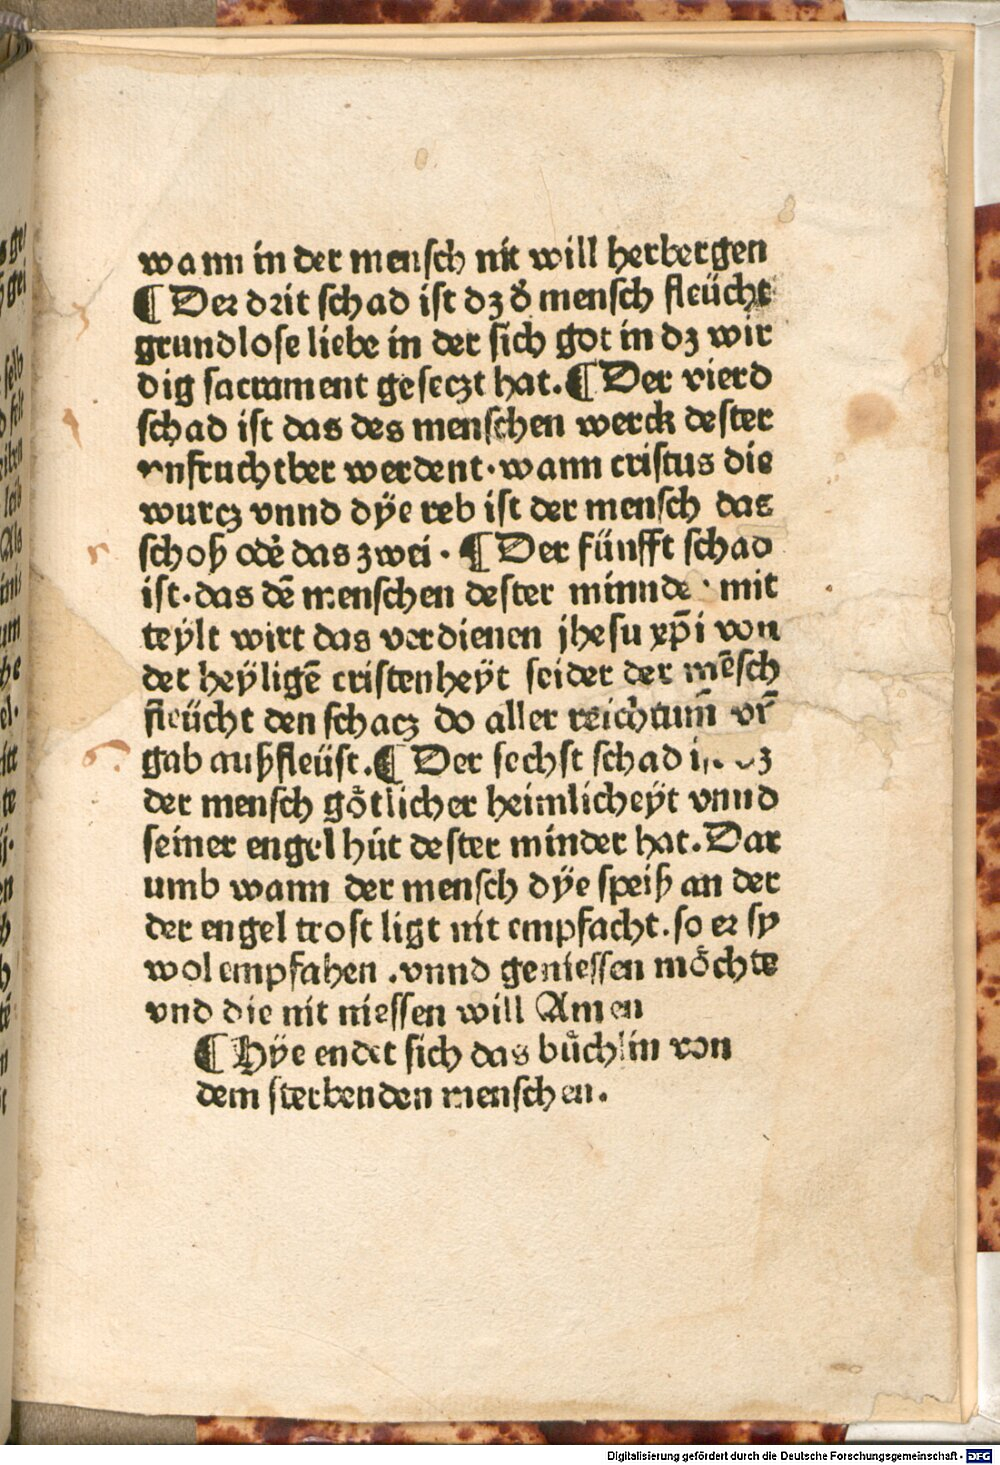 wann in der mensch nit will herbergen
¶ Der drit schad ist dz d̕ mensch fleücht
grundlose liebe in der sich got in dz wir
dig sacrament geseczt hat. ¶ Der vierd
schad ist das des menschen werck dester
vnfruchtber werdent · wann cristus die
wurcz vnnd dÿe reb ist der mensch das
schoß odẽ das zwei · ¶ Der fünfft schad
ist · das dē menschen dester minnder mit
teÿlt wirt das verdienen jhesu xp̄i von
der heÿligē cristenheÿt seider der mēsch
fleücht den schacz do aller reichtum̄ vr̄
gab außfleüst. ¶ Der sechst schad
der mensch götlicher heimlicheÿt vnnd
seiner engel hút dester minder hat. Dar
umb wann der mensch dÿe speiß an der
der engel trost ligt nit empfacht. so er sy
wol empfahen . vnnd geniessen möchte
vnd die nit niessen will Amen
¶ Hÿe endet sich das bůchlin von
dem sterbenden menschen.
Digitalisierung gefördert durch die Deutsche Forschungsgemeinschaft - DFG